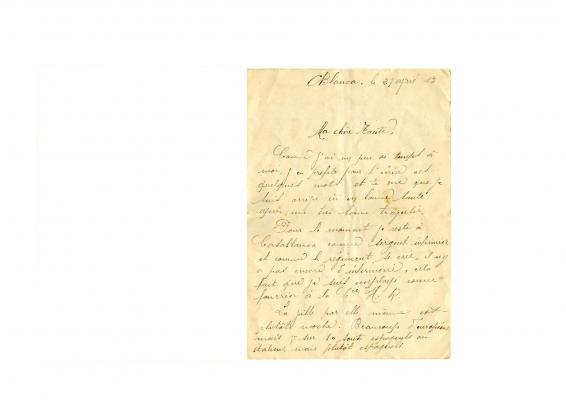 CBlanca. le 27 avril 13
Ma chère Tante,
Comme j'ai un peu de temps à
moi, j'en profite pour t'écrire ces
quelques mots et te dire que je
suis arrivé ici en bonne santé
après une très bonne traversée.
Pour le moment je reste à
Casablanca comme sergent infirmier
et comme le régiment se crée, il n'y
a pas encore d'infirmerie, cela
fait que je suis employé comme
fourrier à la Cie H. R.
La ville par elle même est
plutôt moche. Beaucoup d'européens
mais sur 10 sont espagnols ou
italiens, mais plutôt espagnols.